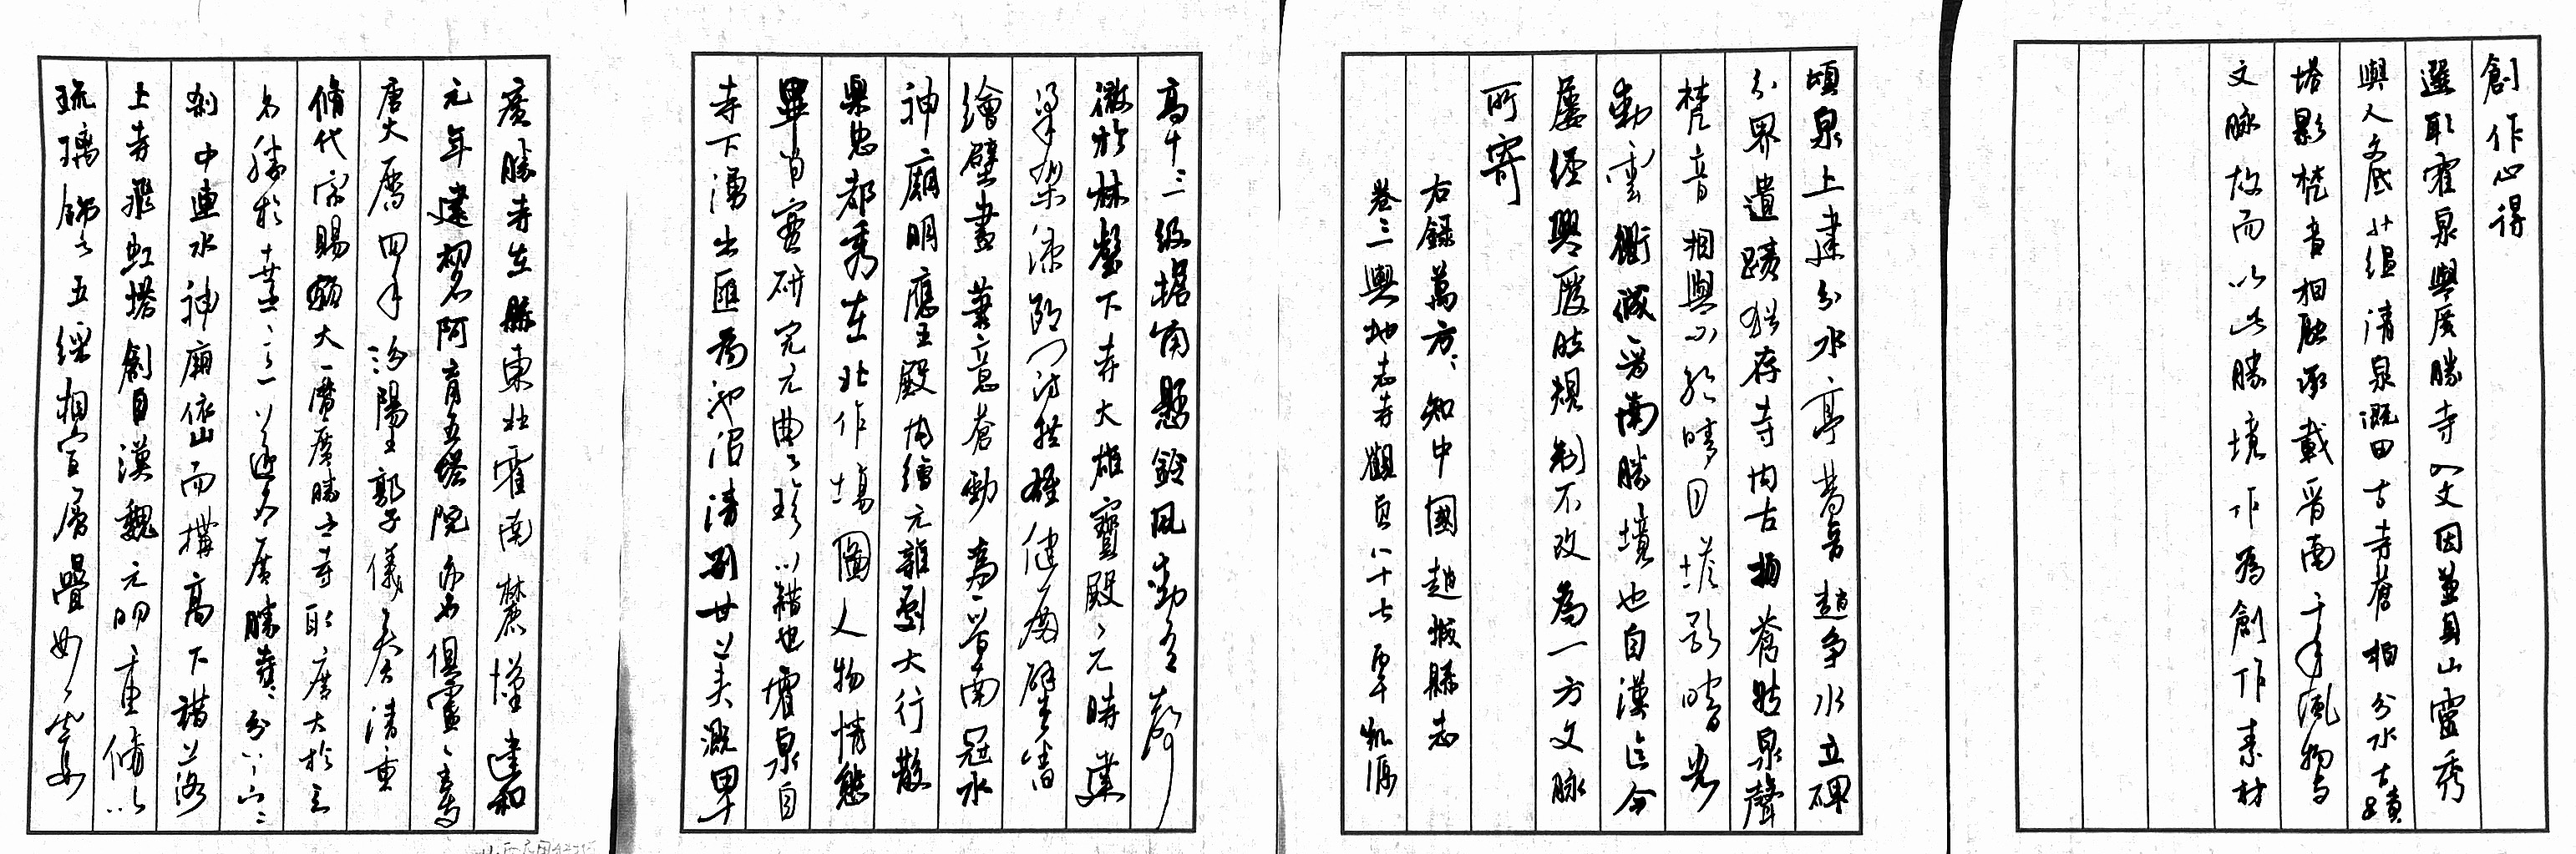 廣勝寺在縣東北霍南麓漢建和
元年建初名阿育王塔院亦名俱盧舍寺
唐大曆四年汾陽王郭子儀奏請重
修代宗賜額大曆廣勝之寺取廣大於天
名勝於世之意遂名廣勝寺寺分上下二
刹中連水神廟依山而構高下錯落
上寺飛虹塔創自漢魏元明重修以
琉璃飾之五綵相宣層疊
高十三級據角懸鈴風動有聲
徹於林壑下寺大雄寶殿元時建
梁架 斗拱雄健 壁舊
繪壁畫 意蒼勁為晉南冠水
神廟明應王殿內繪元雜劇大行散
樂忠都秀在此作場圖人物情態
畢肖實研究元曲之珍 也霍泉自
寺下湧出匯為池沼清冽甘美溉田
頃泉上建分水亭昔 趙爭水立碑
分界遺蹟猶存寺內古柏蒼然泉聲
梵音相與 晴日塔影 光
動雲衢誠晉南勝境也自漢迄今
屢經興廢然規制不改為一方文脈
所寄
右錄萬方知中國趙城縣志
卷三輿地志寺觀頁八十七 凱源
創作心得
選取霍泉與廣勝寺 文因兼具山靈秀
與人文底蘊清泉溉田古寺蒼柏分水古蹟
塔影梵音相融承載晉南千年風物與
文脈故而以此勝境作為創作素材